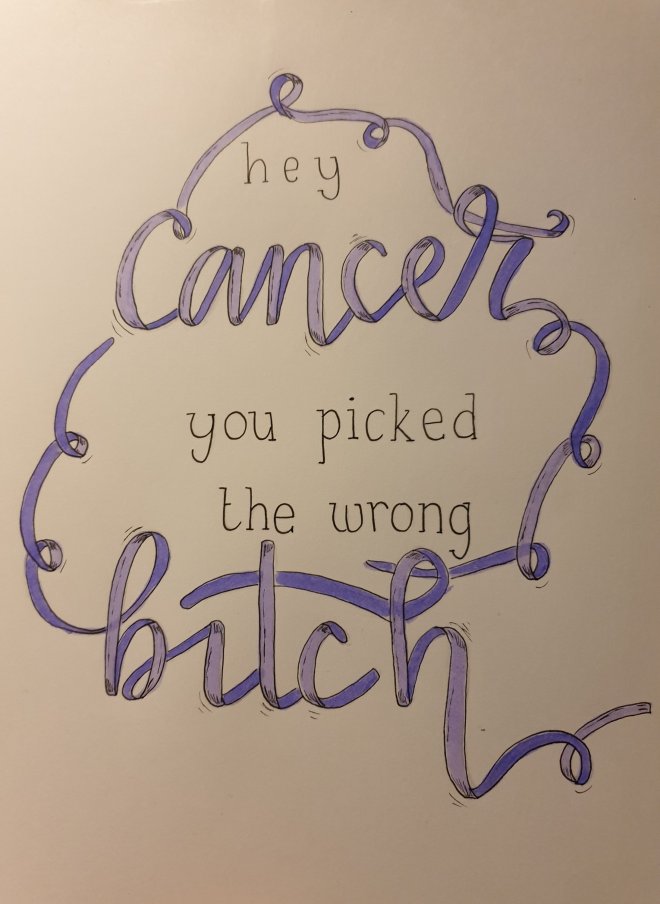 hey
cancer
you picked
the wrong
bitch